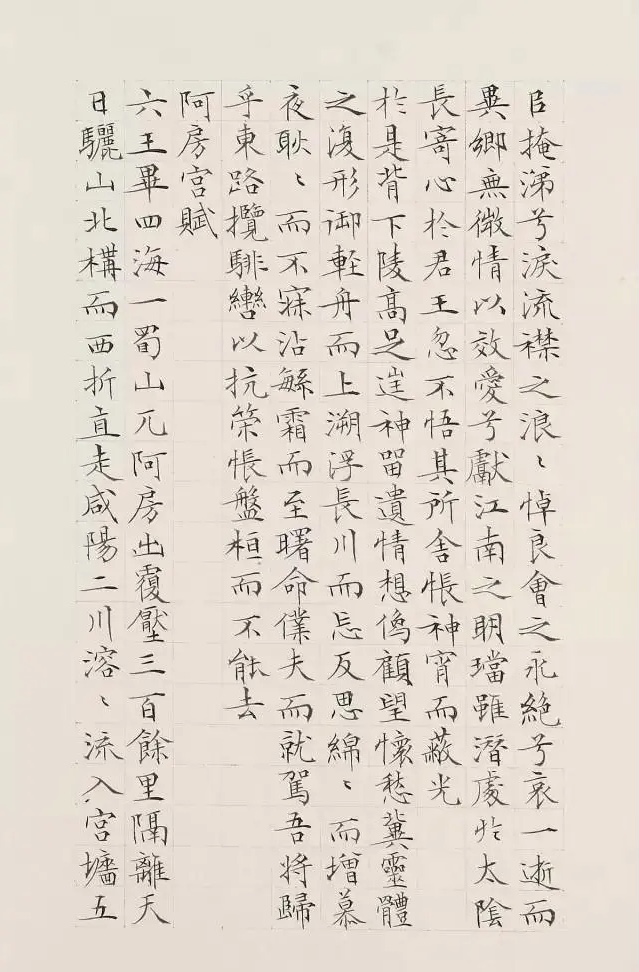 以掩涕兮淚流襟之浪〻悼良會之永絕兮哀一逝而
異鄉無微情以效愛兮獻江南之明璫雖潛處於太陰
長寄心於君王忽不悟其所舍悵神宵而蔽光
於是背下陵高足逞神留遺情想像顧望懷愁冀靈體
之復形御輕舟而上溯浮長川而忘反思綿〻而增慕
夜耿〻而不寐沾繁霜而至曙命僕夫而就駕吾將歸
乎東路攬騑轡以抗策悵盤桓而不能去
阿房宮賦
六王畢四海一蜀山兀阿房出覆壓三百餘里隔離天
日驪山北構而西折直走咸陽二川溶〻流入宮墻五